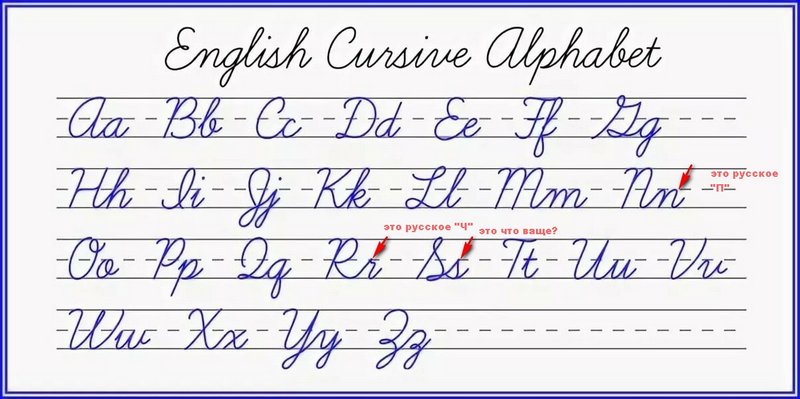 English Cursive Alphabet
Aa Bb Cc Dd Ee Ff Gg
Hh Ii Jj Kk Ll Mm Nn
это русское
"П"
это русское "Ч"
это что ваще?
Oo Pp Qq Rr Ss Tt Uu Vv
Ww Xx Yy Zz